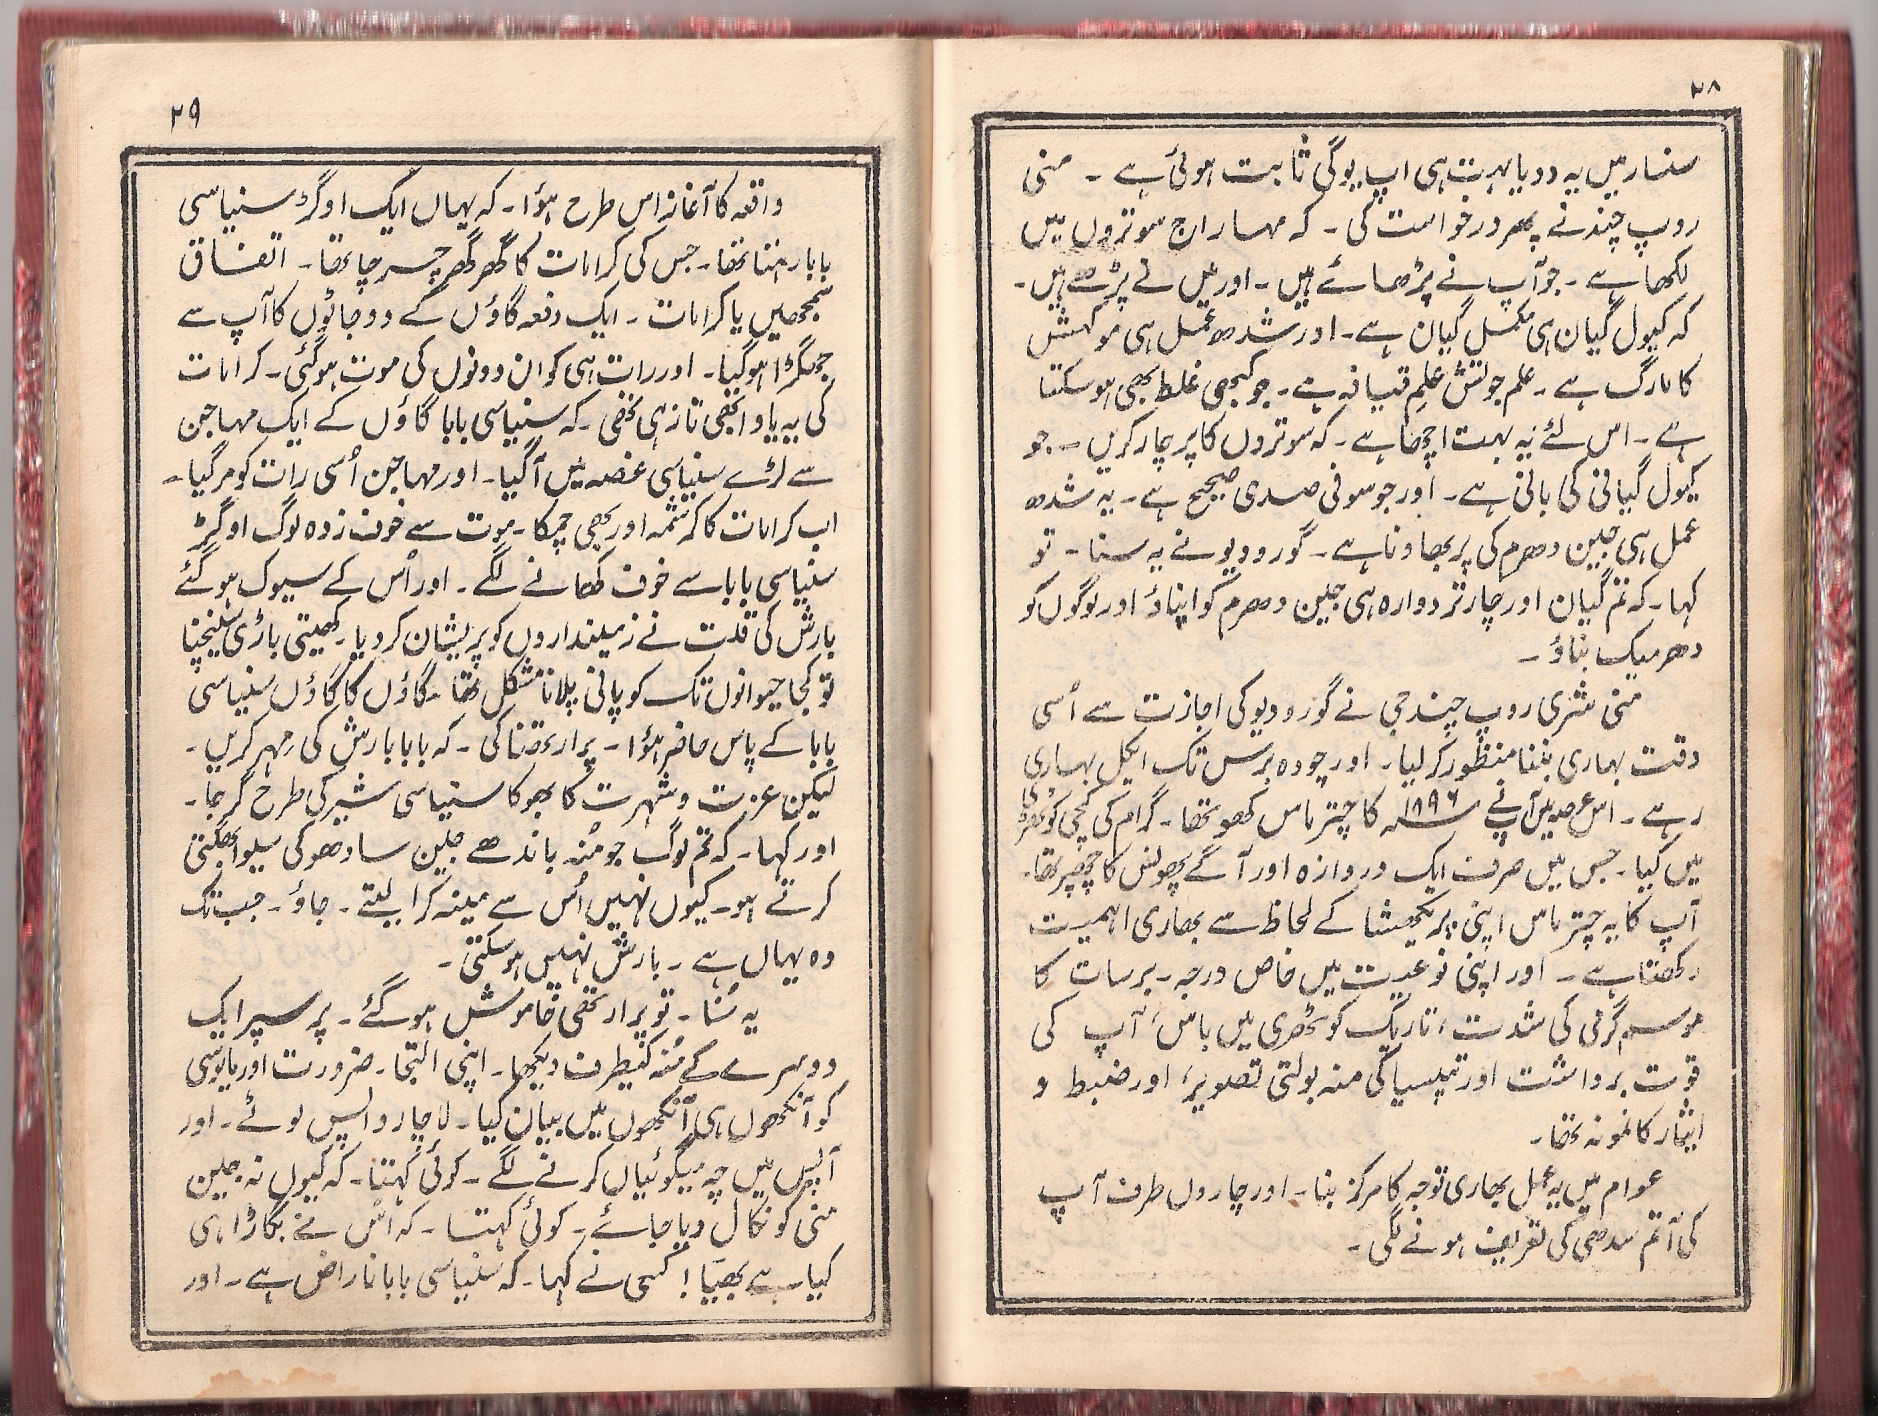 ۲۸
سنسار میں یہ ودیا بہت ہی اپ یوگی ثابت ہوئی ہے ۔ منی
روپ چند نے پھر درخواست کی ۔ کہ مہاراج سوتروں میں
لکھا ہے ۔ جو آپ نے پڑھائے ہیں ۔ اور میں نے پڑھے ہیں ۔
کہ کیول گیان ہی مکمل گیان ہے ۔ اور شدھ عمل ہی موکہش
کا مارگ ہے ۔ علم جوتش علم قیافہ ہے ۔ جو کبھی غلط بھی ہو سکتا
ہے ۔ اس لئے یہ بہت اچھا ہے ۔ کہ سوتروں کا پرچار کریں ۔ جو
کیول گیانی کی بانی ہے ۔ اور جو سو فی صدی صحیح ہے ۔ یہ شدھ
عمل ہی جین دھرم کی پربھاونا ہے ۔ گورودیو نے یہ سنا ۔ تو
کہا ۔ کہ تم گیان اور چارتر دوارہ ہی جین دھرم کو اپناؤ اور لوگوں کو
دھرمیک بناؤ ۔
منی شری روپ چند جی نے گورودیو کی اجازت سے اُسی
وقت بہاری بننا منظور کر لیا ۔ اور چودہ برس تک ایکل بہاری
رہے ۔ اس عرصہ میں آپنے ۱۸۹۶ سہ کا چتر ماس کھو تھا ۔ گرام کی کچی کوٹھڑی
میں کیا ۔ جس میں صرف ایک دروازہ اور آگے پھونس کا چھپر تھا ۔
آپ کا یہ چتر ماس اپنی پریکھشا کے لحاظ سے بھاری اہمیت
رکھتا ہے ۔ اور اپنی نوعیت میں خاص درجہ ۔ برسات کا
موسم گرمی کی شدت، تاریک کوٹھڑی میں باس، آپ کی
قوت برداشت اور تپسیا کی منہ بولتی تصویر، اور ضبط و
ایثار کا نمونہ تھا ۔
عوام میں یہ عمل بھاری توجہ کا مرکز بنا ۔ اور چاروں طرف آپ
کی آتم سدھی کی تعریف ہونے لگی ۔
۲۹
واقعہ کا آغاز اس طرح ہؤا ۔ کہ یہاں ایک اوگڑ سنیاسی
بابا رہتا تھا ۔ جس کی کرامات کا گھر گھر چرچا تھا ۔ اتفاق
سمجھیں یا کرامات ۔ ایک دفعہ گاؤں کے دو جاٹوں کا آپ سے
جھگڑا ہو گیا ۔ اور رات ہی کو ان دونوں کی موت ہو گئی ۔ کرامات
کی یہ یاد ابھی تازہ ہی تھی ۔ کہ سنیاسی بابا گاؤں کے ایک مہاجن
سے لڑے سنیاسی غصہ میں آ گیا ۔ اور مہاجن اُسی رات کو مر گیا ۔
اب کرامات کا کرشمہ اور بھی چمکا ۔ موت سے خوف زدہ لوگ اوگڑ
سنیاسی بابا سے خوف کھانے لگے ۔ اور اُس کے سیوک ہو گئے
بارش کی قلت نے زمینداروں کو پریشان کر دیا ۔ کھیتی باڑی سینچنا
تو کجا حیوانوں تک کو پانی پلانا مشکل تھا ۔ گاؤں کا گاؤں سنیاسی
بابا کے پاس حاضر ہؤا ۔ پرارتھنا کی ۔ کہ بابا بارش کی مہر کریں ۔
لیکن عزت و شہرت کا بھوکا سنیاسی شیر کی طرح گرجا ۔
اور کہا ۔ کہ تم لوگ جو مُنہ باندھے جین سادھو کی سیوا بھگتی
کرتے ہو ۔ کیوں نہیں اُس سے مینہ کرا لیتے ۔ جاؤ ۔ جب تک
وہ یہاں ہے ۔ بارش نہیں ہو سکتی ۔
یہ سُنا ۔ تو پرارتھی خاموش ہو گئے ۔ پرسپر ایک
دوسرے کے مُنہ کیطرف دیکھا ۔ اپنی التجا ۔ ضرورت اور مایوسی
کو آنکھوں ہی آنکھوں میں بیان کیا ۔ لاچار واپس لوٹے ۔ اور
آپس میں چہ میگوئیاں کرنے لگے ۔ کوئی کہتا ۔ کہ کیوں نہ جین
منی کو نکال دیا جائے ۔ کوئی کہتا ۔ کہ اُس نے بگاڑا ہی
کیا ہے بھیّا! کسی نے کہا ۔ کہ سنیاسی بابا ناراض ہے ۔ اور